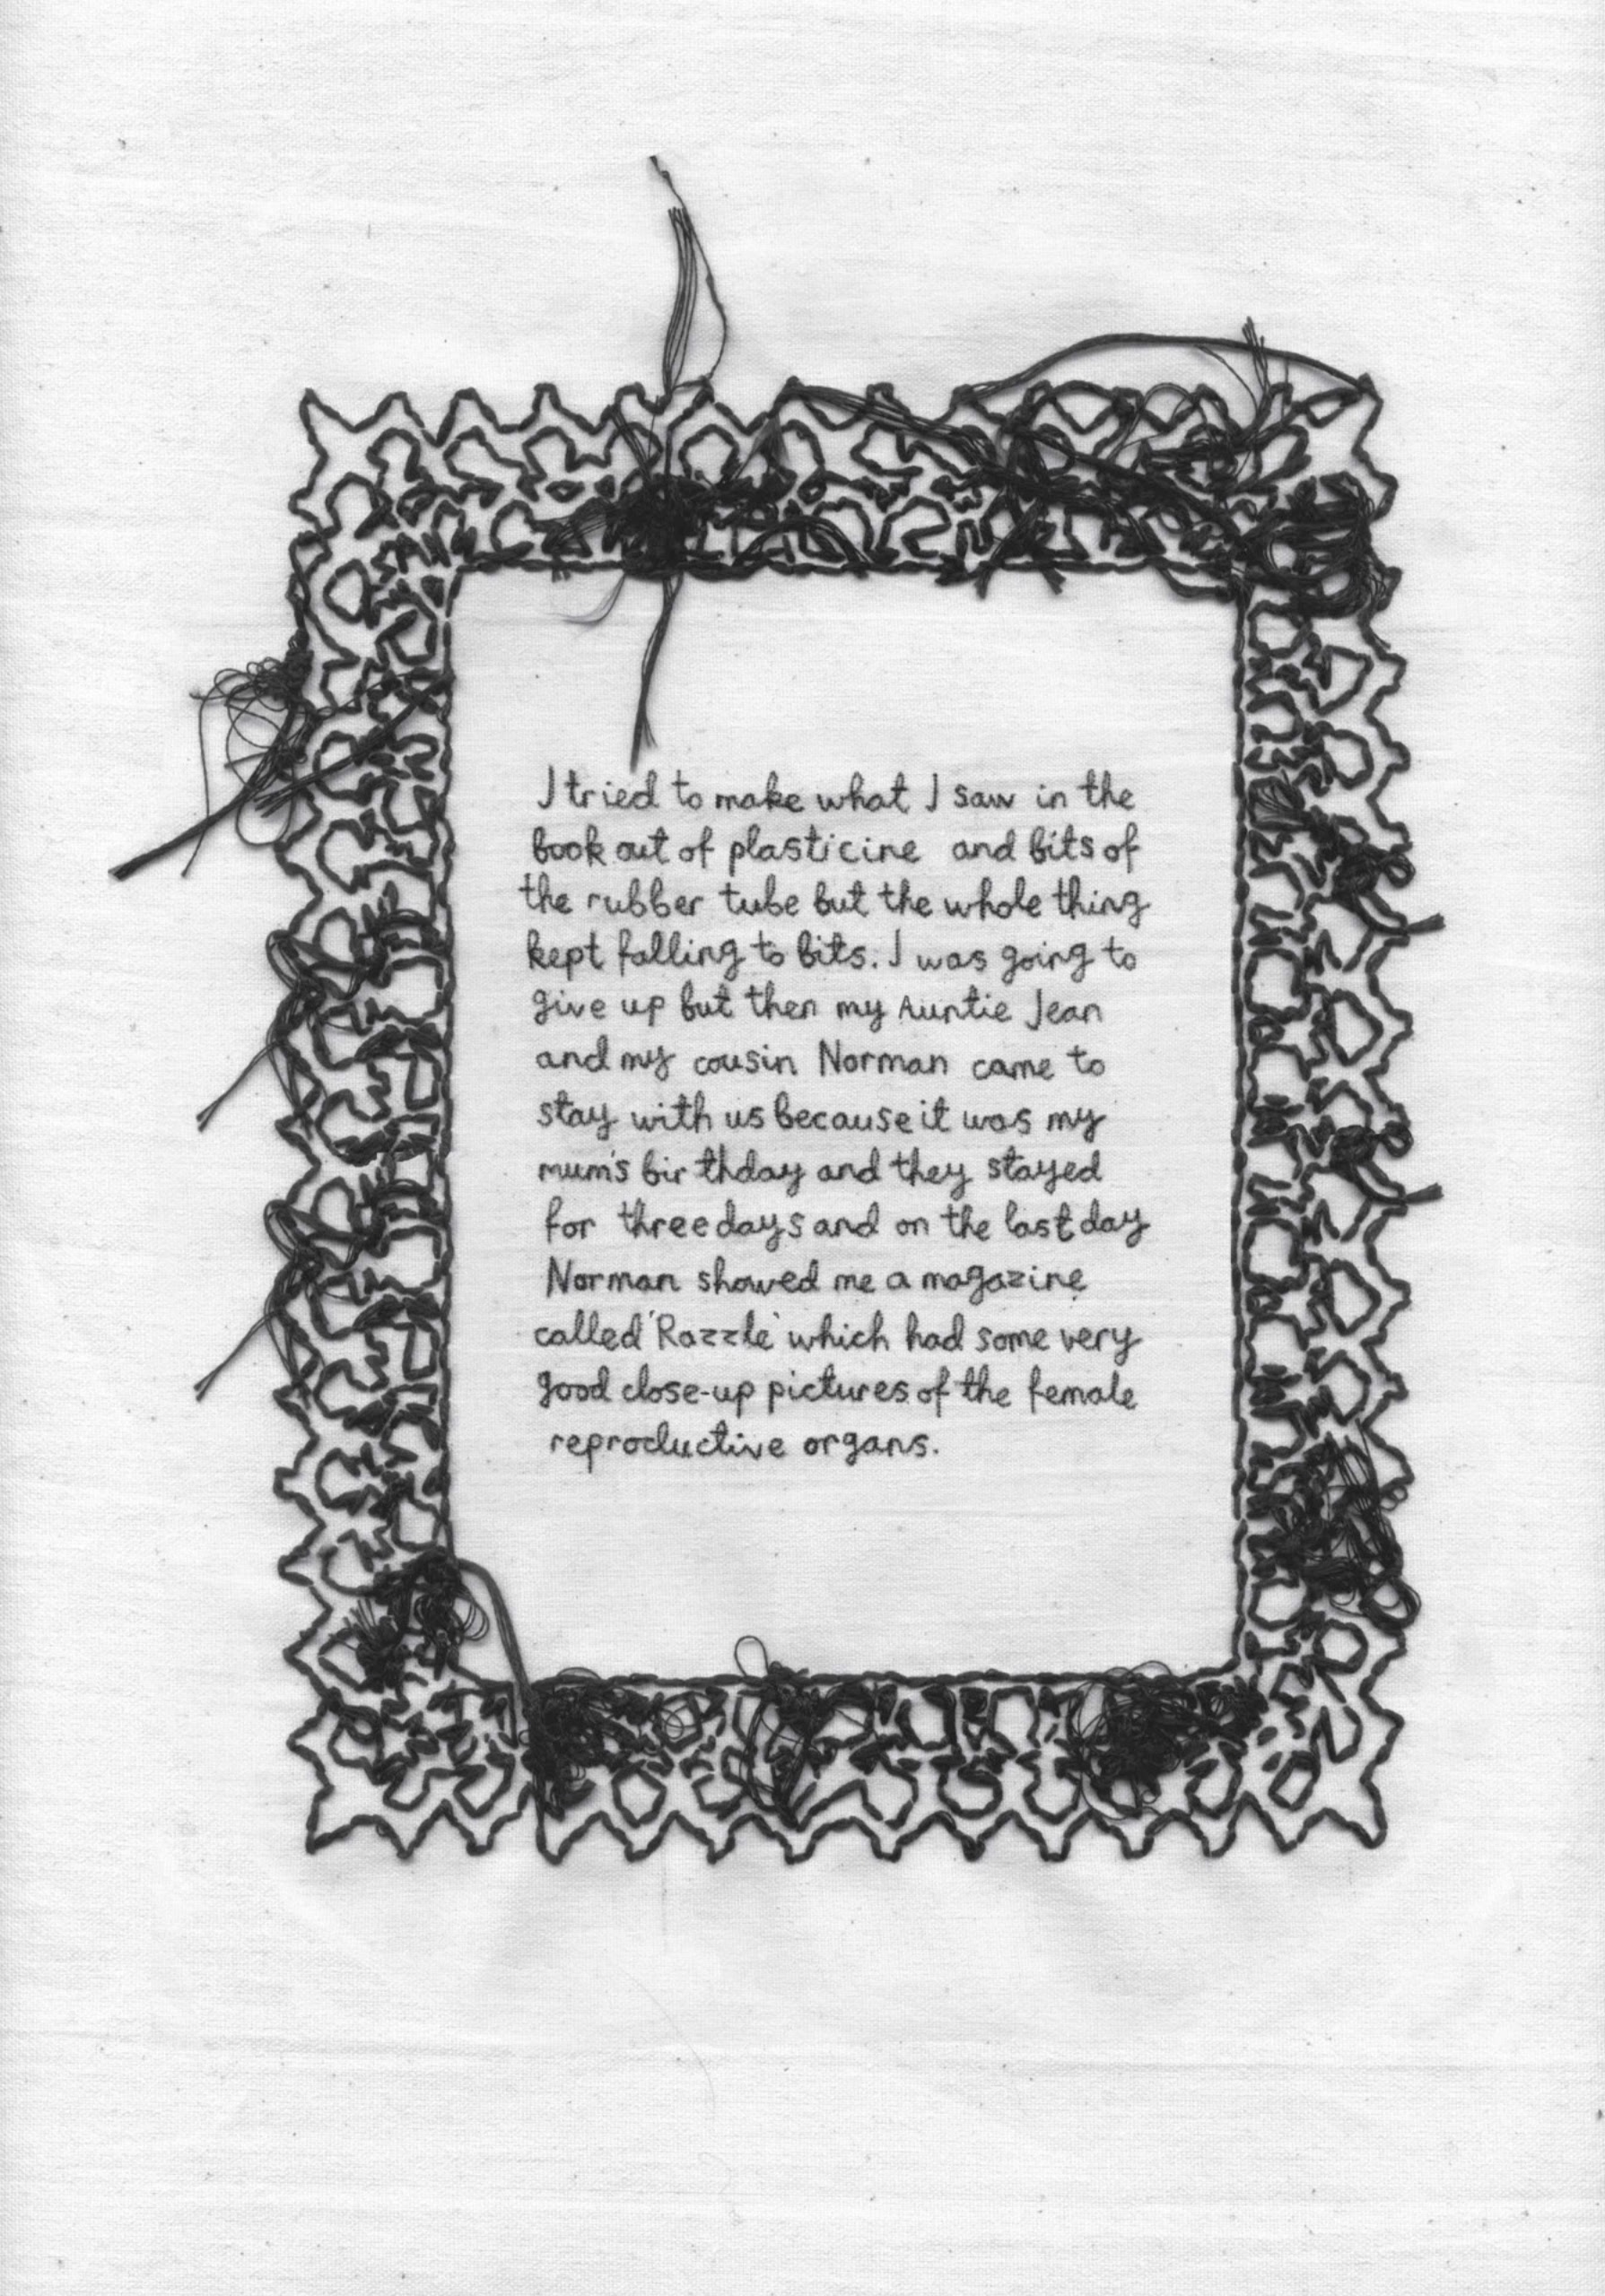 I tried to make what I saw in the
book out of plasticine and bits of
the rubber tube but the whole thing
kept falling to bits. I was going to
give up but then my Auntie Jean
and my cousin Norman came to
stay with us because it was my
mum's birthday and they stayed
for three days and on the last day
Norman showed me a magazine
called 'Razzle' which had some very
good close-up pictures of the female
reproductive organs.